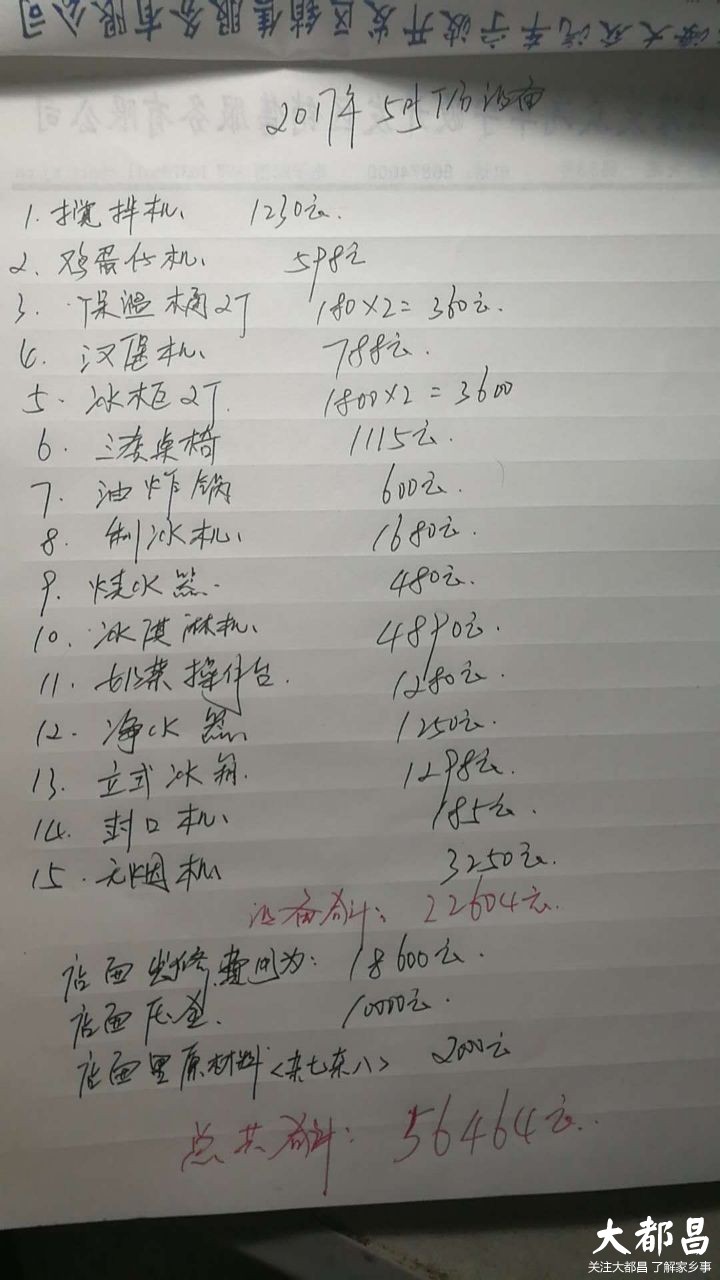 2017年5月下旬设备
1. 搅拌机 1230元.
2. 鸡蛋仔机 598元
3. 保温桶2个 180×2=360元.
4. 汉堡机 788元.
5. 冰柜2个. 1800×2=3600
6. 三套桌椅 1115元.
7. 油炸锅 600元.
8. 制冰机 1680元.
9. 烧水器. 480元.
10. 冰淇淋机 4890元.
11. 奶茶操作台. 1280元.
12. 净水器 1250元.
13. 立式冰箱. 1298元.
14. 封口机 185元.
15. 无烟机 3250元.
设备合计: 22604元.
店面装修费用为: 18600元.
店面压金. 10000元.
店面里原材料<杂七杂八> 2000元
总共合计: 56464元.
大都昌
关注大都昌 了解家乡事